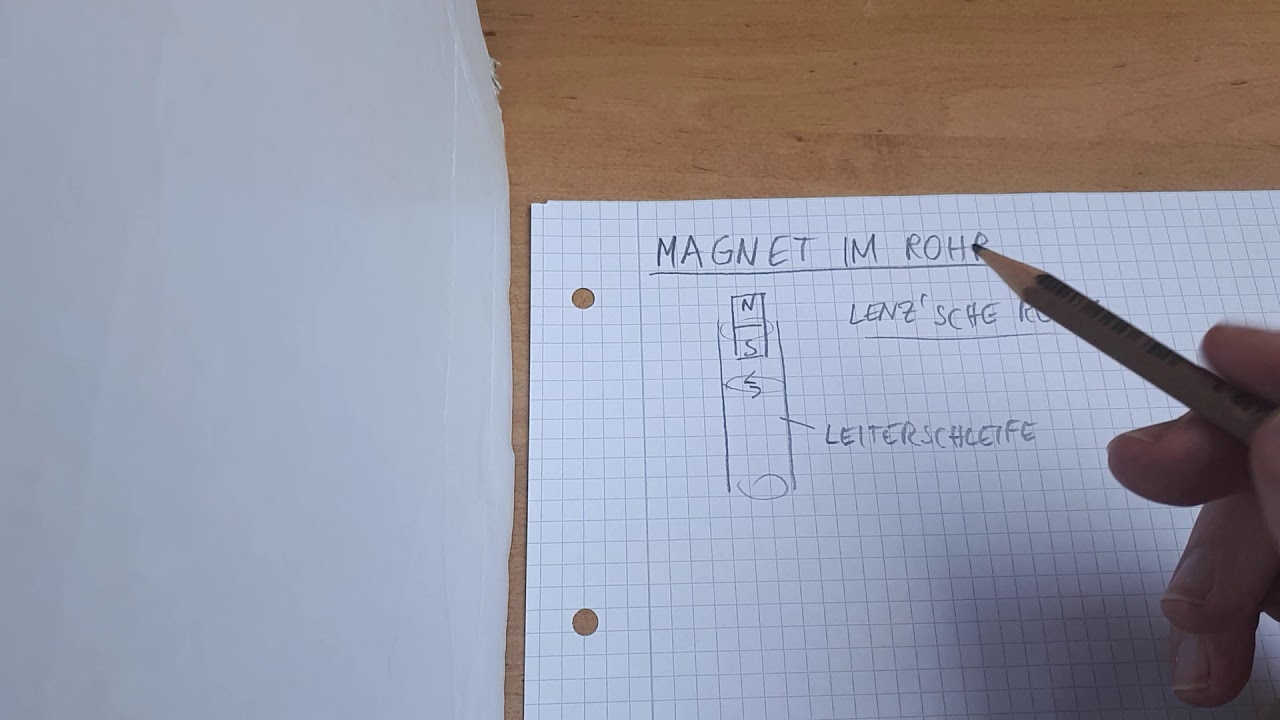 MAGNET IM ROHR
N
LENZ'SCHE
S
S
LEITERSCHLEIFE